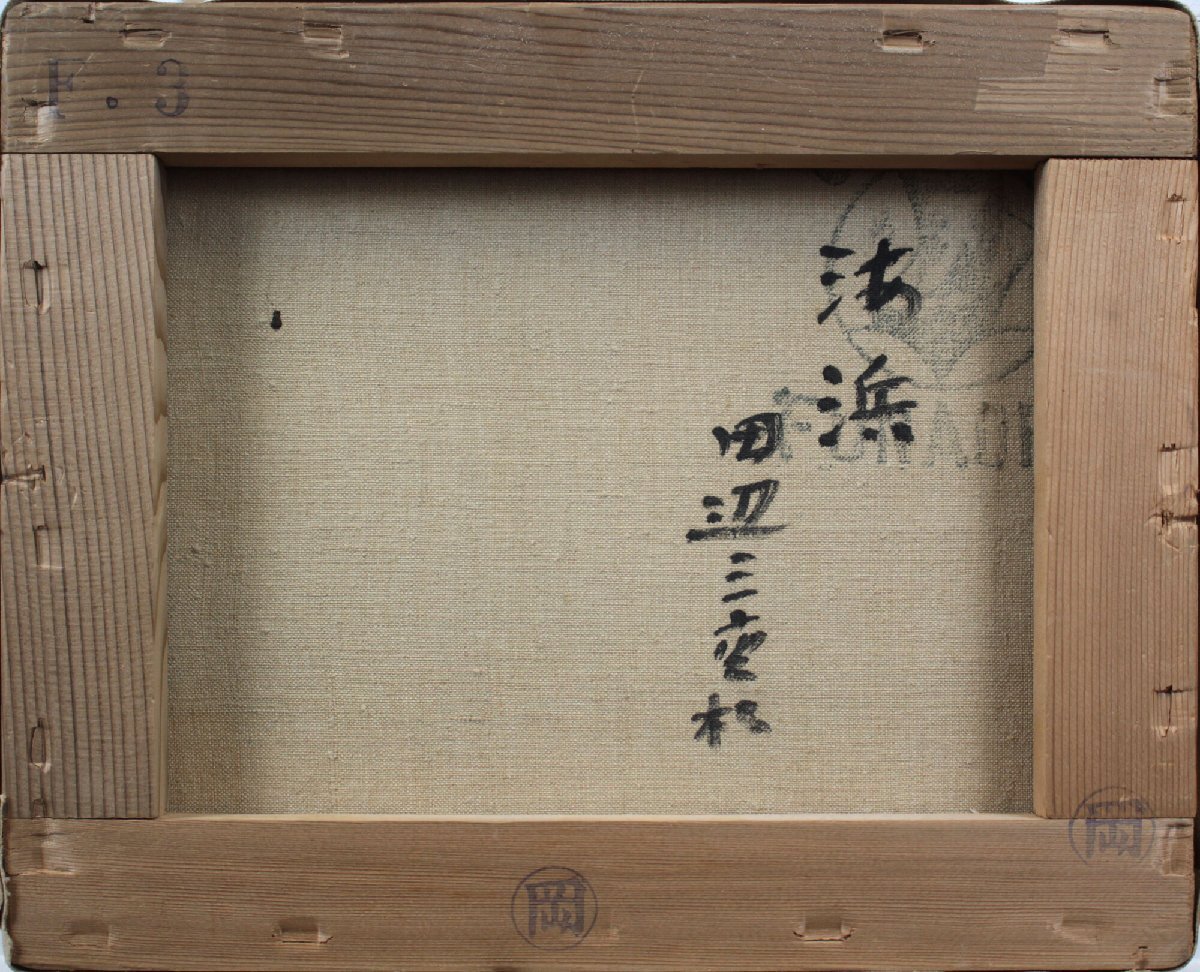 F.3
海浜
田辺三重松
岡
岡